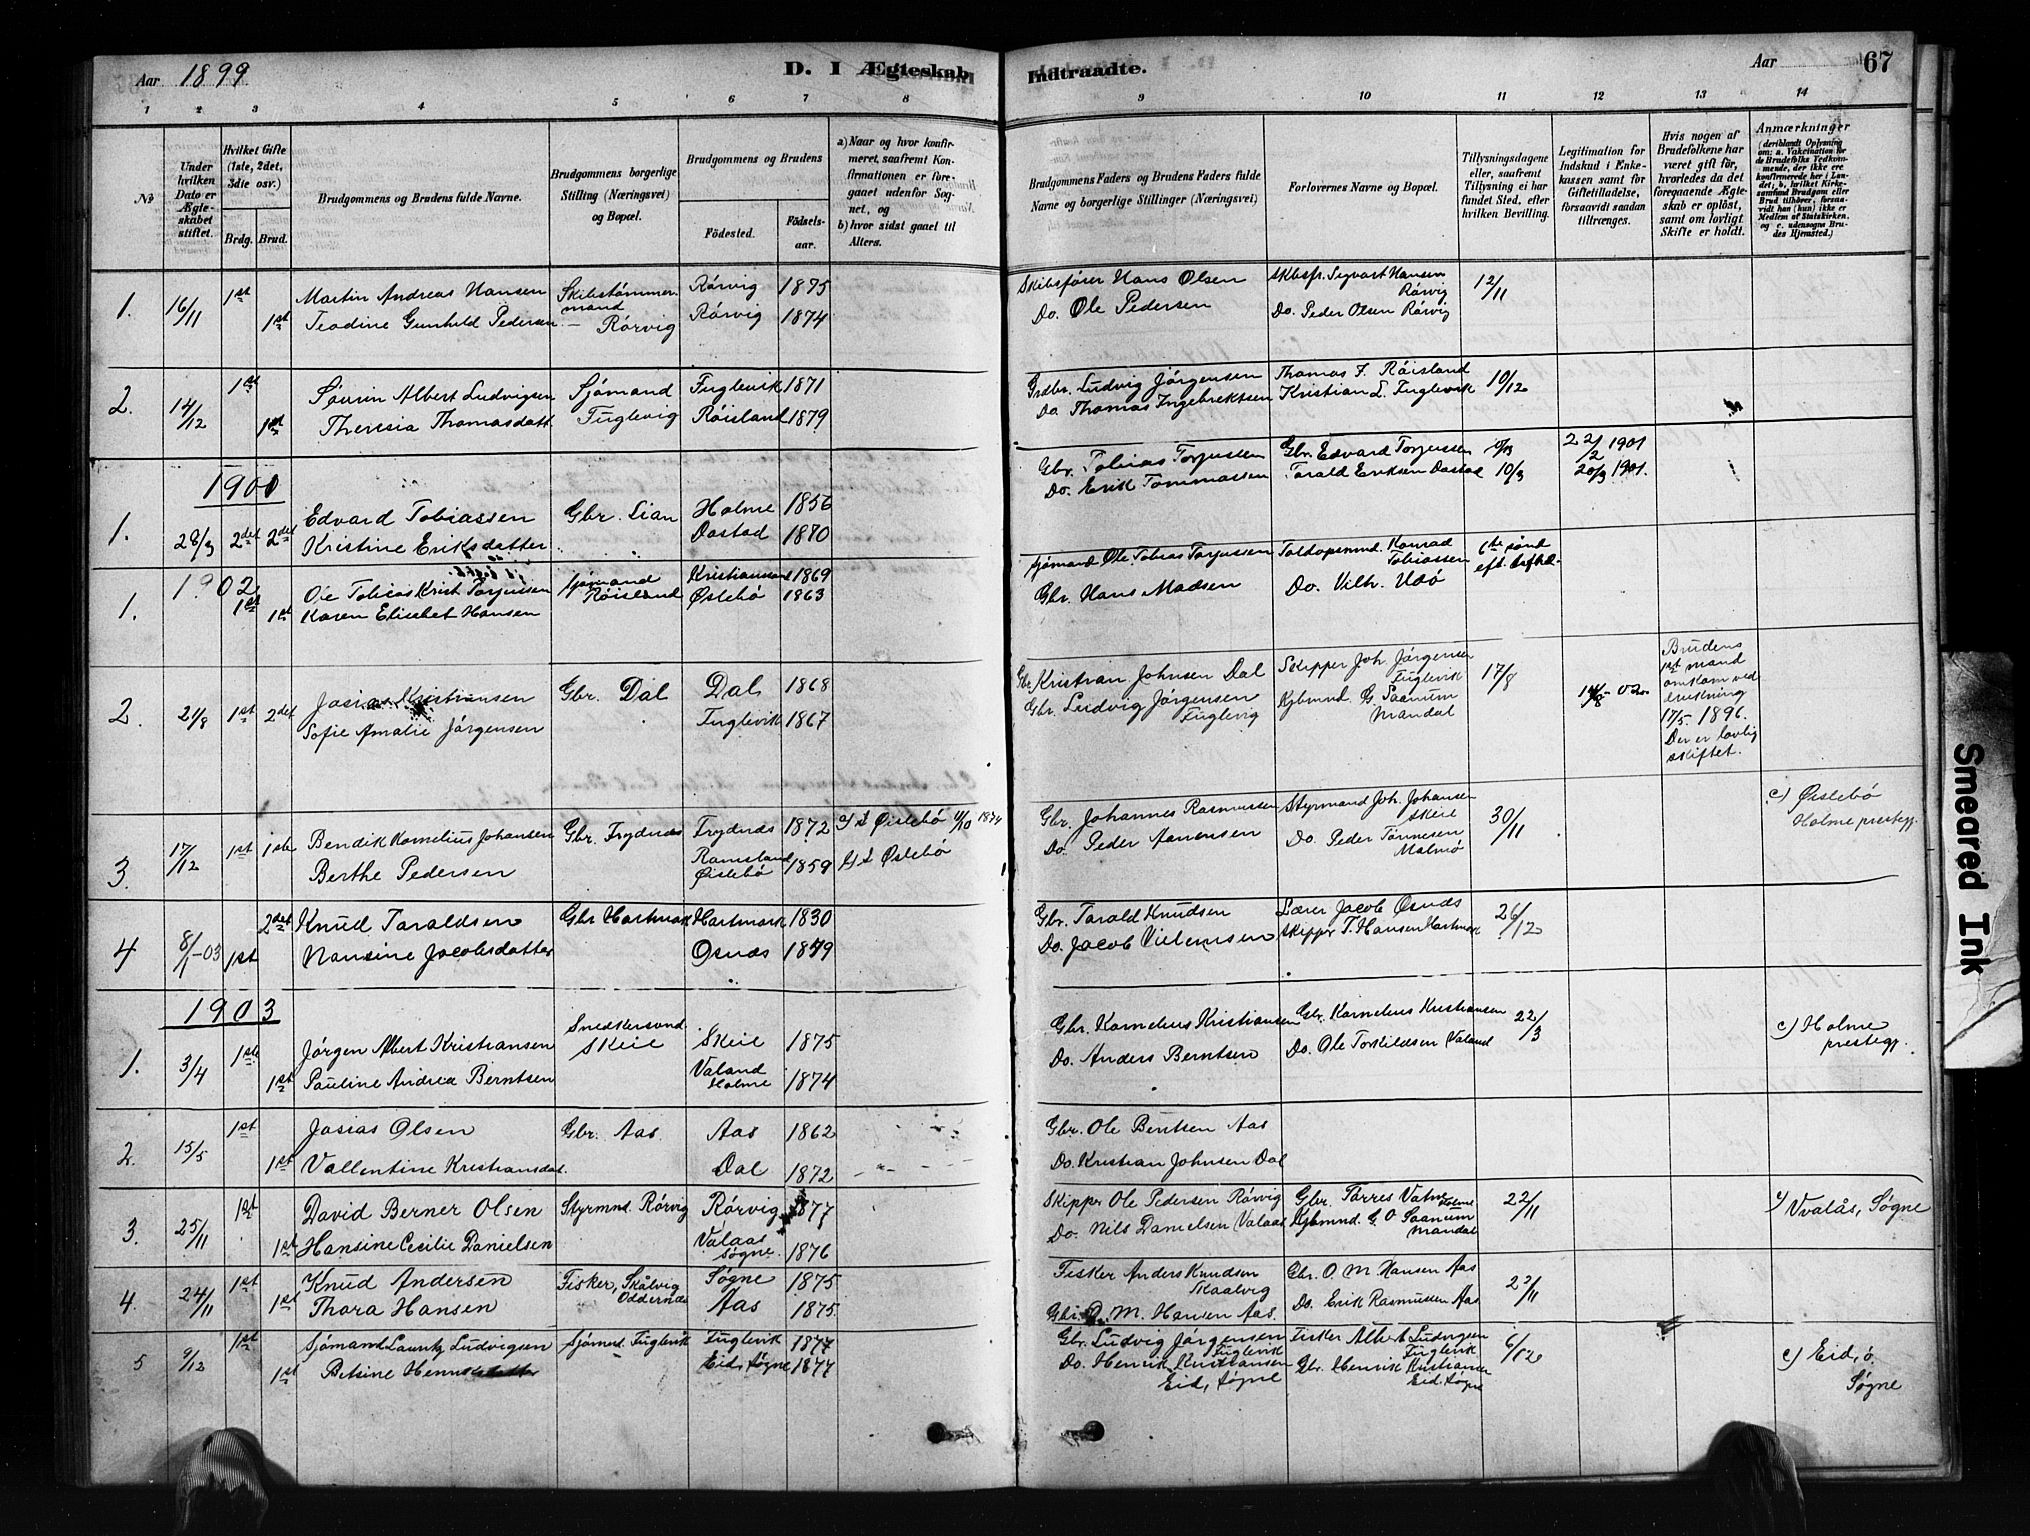 Aar 1899 D. I Ægteskab Indtraadte. Aar 67
1 2 3 4 5 6 7 8 9 10 11 12 13 14
No
Under hvilken Dato er Ægteskabet stiftet.
Hvilket Gifte (1ste, 2det, 3die osv.)
Brdg. Brud.
Brudgommens og Brudens fulde Navne.
Brudgommens borgerlige Stilling (Næringsvei) og Bopæl.
Brudgommens og Brudens
Födested. Födsels-aar.
a) Naar og hvor konfirmeret, saafremt Konfirmationen er foregaaet udenfor Sognet, og
b) hvor sidst gaaet til Alters.
Brudgommens Faders og Brudens Faders fulde Navne og borgerlige Stillinger (Næringsvei)
Forlovernes Navne og Bopæl.
Tillysningsdagene eller, saafremt Tillysning ei har fundet Sted, efter hvilken Bevilling.
Legitimation for Indskud i Enkekassen samt for Giftetilladelse, forsaavidt saadan tiltrænges.
Hvis nogen af Brudefolkene har været gift för, hvorledes da det foregaaende Ægteskab er oplöst, samt om lovligt Skifte er holdt.
Anmærkninger (deriblandt Oplysning om: a. Vakcination for de Brudefolks Vedkommende, der ikke ere konfirmerede her i Landet; b. hvilket Kirkesamfund Brudgom eller Brud tilhörer, forsaavidt han (hun) ikke er Medlem af Statskirken. og c. udensogns Brudes Hjemsted.)
1. 16/11 1st Martin Andreas Hansen Skibstømmermand Rörvig 1875 Skibsfører Hans Olsen Skbsfr. Sigvart Hansen Rörvig 12/11
1st Teodine Gunhild Pedersen – Rörvig Rörvig 1874 Do. Ole Pedersen Do. Peder Olsen Rörvig
2. 14/12 1st Sörin Albert Ludvigsen Sjömand Fuglevik 1871 Grdbr. Ludvig Jörgensen Thomas F. Röisland 10/12
1st Theresia Thomasdatt. Fuglevig Röisland 1879 Do Thomas Ingebrektsen Kristian L. Fuglevik
1900
1. 28/3 2det 2det Edvard Tobiassen Gbr. Lian Holme 1856 Gbr. Tobias Torjussen Gbr. Edvard Torjussen 22/2 1901
Kristine Eriksdatter Dastad 1870 Do. Erik Tommassen Tarald Eriksen Dastad 10/3 20/3 1901.
1902
1. 1st Ole Tobias Krist Torjussen Sjömand Kristianssand 1869 Sjömand Ole Tobias Torjussen Toldopsmnd. Konrad Tobiassen 6te sönd
1st Karen Elisabet Hansen Röisland Øslebö 1863 Gbr. Hans Madsen Do. Vilh. Udö
2. 21/8 1st 2det Josias Kristiansen Gbr. Dal Dal 1868 Gbr Kristian Johnsen Dal Skipper Joh. Jörgensen Fuglevik 17/8 14/8-02
Sofie Amalie Jörgensen Fuglevik 1867 Gbr. Ludvig Jörgensen Fuglevig Kjbmnd. G. Saanum Mandal
Brudens 1st mand omkom ved drukning 17/5. 1896. Der er lovlig skiftet.
3. 17/12 1st 1ste Bendik Kornelius Johansen Gbr. Frydnæs Frydnæs 1872 Øislebö 4/10 Gbr. Johannes Rasmussen Styrmand Joh. Johansen Skeie 30/11 c) Øislebö Holme prestegj.
Berthe Pedersen Ramsland Øislebö 1859 Øslebö Do. Peder Aanensen Do. Peder Tönnesen Malmö
4 8/1-03 2det Knud Taraldsen Gbr Hartmark Hartmark 1830 Gbr. Tarald Knudsen Lærer Jacob Osnæs 26/12
1st Nansine Jacobsdatter Osnæs 1879 Do. Jacob Vilemsen Skipper T. Hansen Hartmark
1903
1. 3/4 1ste Jörgen Albert Kristiansen Snedkersvend Skeie Skeie 1875 Gbr. Kornelius Kristiansen Gbr. Kornelius Kristiansen 22/3 c) Holme prestegj.
1st Pauline Andrea Berntsen Valand Holme 1874 Do. Anders Berntsen Do. Ole Torkildsen Valand
2. 15/5 1st Josias Olsen Gbr. Aas. Aas 1862 Gbr. Ole Bentsen Aas
1st Vallentine Kristiansdat. Dal 1872 Do. Kristian Johnsen Dal
3. 25/11 1st David Berner Olsen Styrmnd. Rörvig Rörvig 1877 Skipper Ole Pedersen Rörvig Gbr. Törres Vatne Holme 22/11 c) Vvalås, Søgne
1st Hansine Cecilie Danielsen Valaas Søgne. 1876 Do. Nils Danielsen Valaas Kjbmnd. G. O Saanum Mandal
4. 24/11 1st Knud Andersen Fisker, Skålvig Oddernes Søgne 1875 Fisker Anders Knudsen Skaalvig Gbr. O. M Hansen Aas 22/11
1st Thora Hansen Aas 1875 Gbr. O. M. Hansen Aas. Do. Erik Rasmussen Aas
5 9/12 1st Sjömand Lauritz Ludvigsen Sjömnd. Fuglevik Fuglevik 1877 Gbr. Ludvig Jörgensen Fuglevik Fisker Albert Ludvigsen Fuglevik 6/12 c) Eid, ö. Søgne
1st Betsine Henriksdatter Eid, Søgne 1877 Do. Henrik Kristiansen Eid, Søgne Gbr. Henrik Kristiansen Eid, Søgne
Smeared Ink